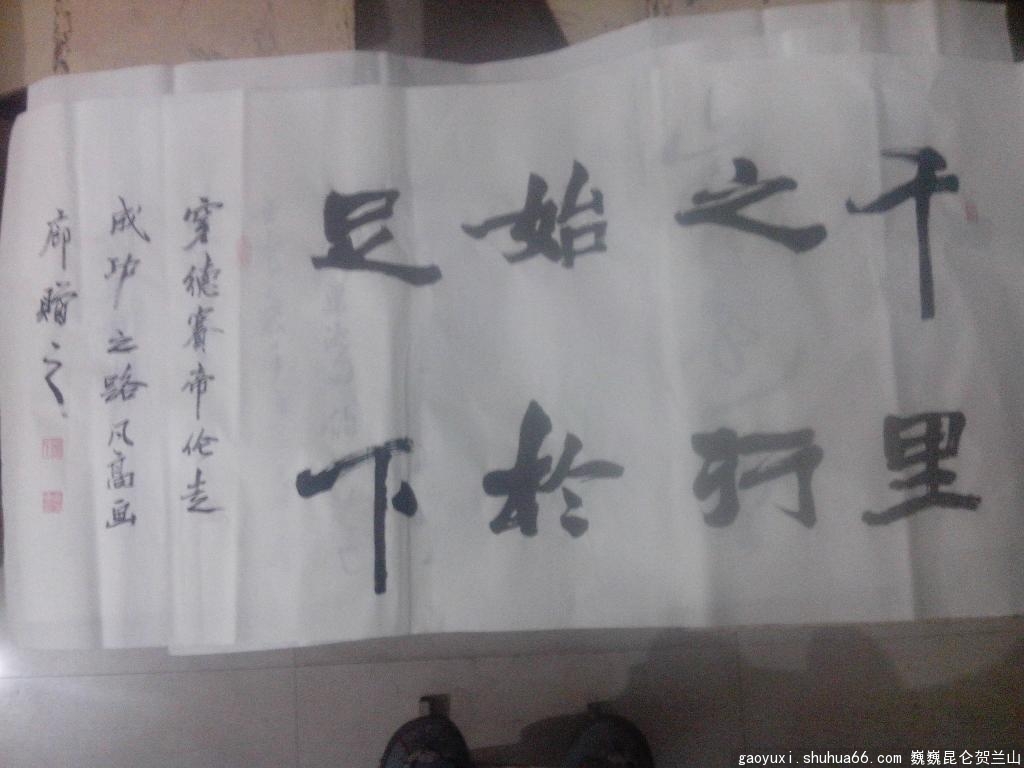 千里
之行
始於
足下
穿德賽帝伦走
成功之路凤高画
廊赠之
gaoyuxi.shuhua66.com 巍巍昆仑贺兰山